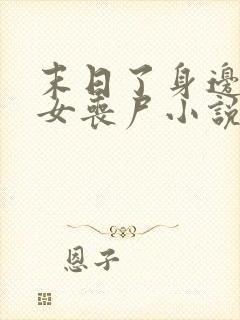 末日了身邊
女喪尸小說
恩子